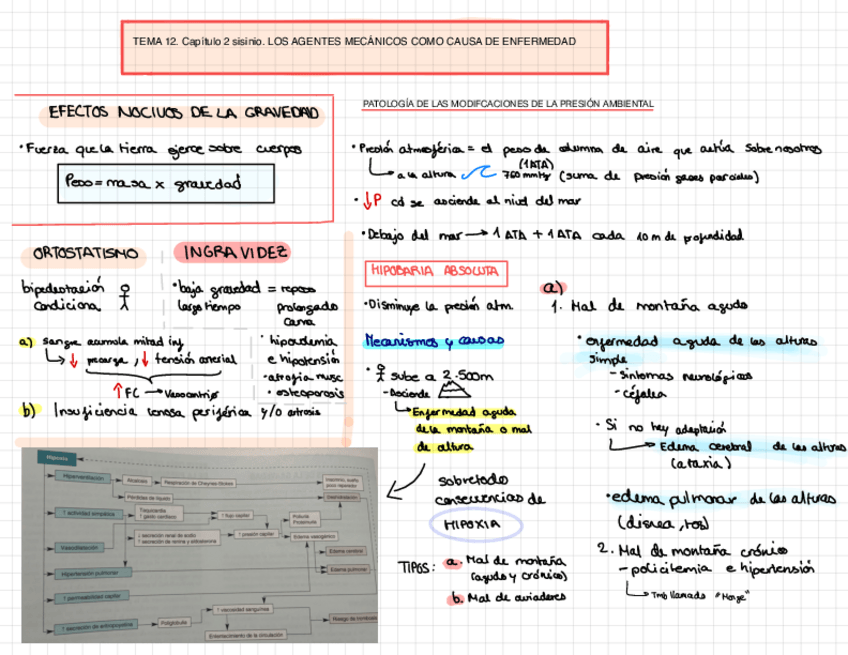 TEMA 12. Capítulo 2 sisinio. LOS AGENTES MECÁNICOS COMO CAUSA DE ENFERMEDAD
EFECTOS NOCIVOS DE LA GRAVEDAD
• Fuerza que la tierra ejerce sobre cuerpos
Peso = masa x gravedad
ORTOSTATISMO
bipedestación
condiciona
a) sangre acumula mitad inf
↳ ↓ precarga, ↓ tensión arterial
↑ FC → Vasoconstricc
b) Insuficiencia venosa periférica y/o artrosis
INGRAVIDEZ
• baja gravedad = reposo
largo tiempo prolongado
cama
• hipovolemia
e hipotensión
• atrofia musc
• osteoporosis
PATOLOGÍA DE LAS MODIFCACIONES DE LA PRESIÓN AMBIENTAL
• Presión atmosférica = el peso de columna de aire que actúa sobre nosotros
(1 ATA)
↳ a la altura 760 mmHg (suma de presión gases parciales)
• ↓P cd se asciende el nivel del mar
• Debajo del mar → 1 ATA + 1 ATA cada 10 m de profundidad
HIPOBARIA ABSOLUTA
• Disminuye la presión atm.
Mecanismos y causas
• sube a 2.500m
- Asciende
↳ Enfermedad aguda
de la montaña o mal
de altura
sobretodo
consecuencias de
HIPOXIA
TIPOS: a. Mal de montaña
(agudo y crónico)
b. Mal de aviadores
a)
1. Mal de montaña agudo
• enfermedad aguda de las alturas
simple
- Síntomas neurológicos
- céfalea
• Si no hay adaptación
↳ Edema cerebral de las alturas
(ataxia)
• edema pulmonar de las alturas
(disnea, tos)
2. Mal de montaña crónico
- policitemia e hipertensión
↳ Tmb llamado "Monge"
Hipoxia
Hiperventilación
Alcalosis
Respiración de Cheyne-Stokes
Insomnio, sueño
poco reparador
Pérdidas de líquido
Deshidratación
↑ actividad simpática
Taquicardia
↑ gasto cardíaco
↑ flujo capilar
Poliuria
Proteinuria
↓ secreción renal de sodio
↑ secreción de renina y aldosterona
↑ presión capilar
Edema vasogénico
Vasodilatación
Edema cerebral
Hipertensión pulmonar
Edema pulmonar
↑ permeabilidad capilar
↑ viscosidad sanguínea
↑ secreción de eritropoyetina
Poliglobulia
Riesgo de trombosis
Enlentecimiento de la circulación